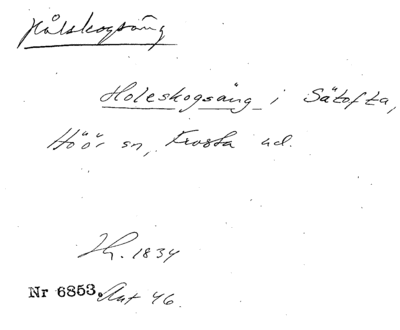 Hålskogsäng
Holeskogsäng i Sätofta,
Höör sn, Frosta hd.
Th. 1834
Nr 6853. Ant 46.